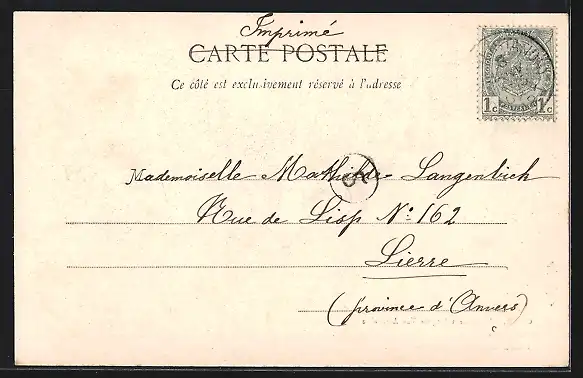 Imprimé
CARTE POSTALE
Ce côté est exclusivement réservé à l'adresse
1c 1c
Mademoiselle Mathilde Langenbich
Rue de Lisp N° 162
Lierre
(province d'Anvers)